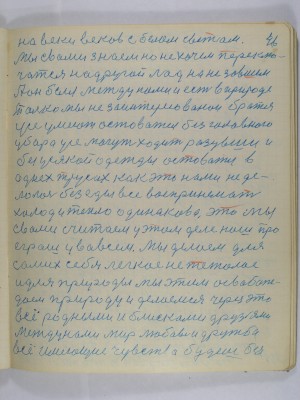 на веки веков с белом светом.
46
Мы с вами знаем но не хочем переклю-
чатся на другой лад на незовшем
А он был между нами и есть в природе
Только мы не заинтересованы братся
уже умеют остоватся без головного
убора уже могут ходит разувшии и
без всякой одежды оставатся в
одних трусах как это нами не де-
лолося без еды все воспринемать
холод и тепло одинаково, это мы
с вами считаем у этом деле наш про
еграш у во всем. Мы делаем для
самих себя легкое не тежолое
и для природы мы этим освобож-
даем природу и делаемся через это
всё родными и блискими друзями
между нами мир любов и дружба
всё имеющие чувства будим без